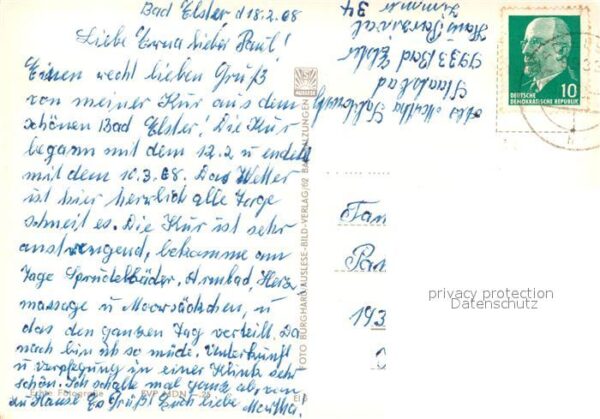 Bad Elster d 18.2.68
Liebe Erna lieber Paul!
Einen recht lieben Gruß
von meiner Kur aus dem
schönen Bad Elster! Die Kur
begann mit dem 12.2 u endet
mit dem 10.3.68. Das Wetter
ist hier herrlich alle Tage
schneit es. Die Kur ist sehr
anstrengend, bekomme am
Tage Sprudelbäder, Armbad, Herz
massage u Moorsäckchen, u
das den ganzen Tag verteilt. Da
nach bin ich so müde. Unterkunft
u verpflegung in einer Klinik sehr
schön. Ich schalte mal ganz ab, von
zu Hause Es Grüßt Euch liebe Martha.
Abs Martha
Staatsbad
9933 Bad Elster
Haus
Zimmer 34
AUSLESE
FOTO BURGHARD-AUSLESE-BILD-VERLAG, 62 BAD SALZUNGEN
Echte Fotografie
EVP MDN -.25
DEUTSCHE
DEMOKRATISCHE REPUBLIK
10
Fam
193
privacy protection
Datenschutz